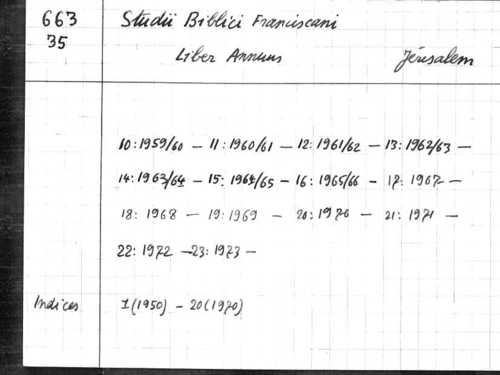 663 Studii Biblici Franciscani
35
Liber Annuus Jérusalem
10: 1959/60 — 11: 1960/61 — 12: 1961/62 — 13: 1962/63 —
14: 1963/64 — 15: 1964/65 — 16: 1965/66 — 17: 1967 —
18: 1968 — 19: 1969 — 20: 1970 — 21: 1971 —
22: 1972 — 23: 1973 —
Indices 1 (1950) — 20 (1970)